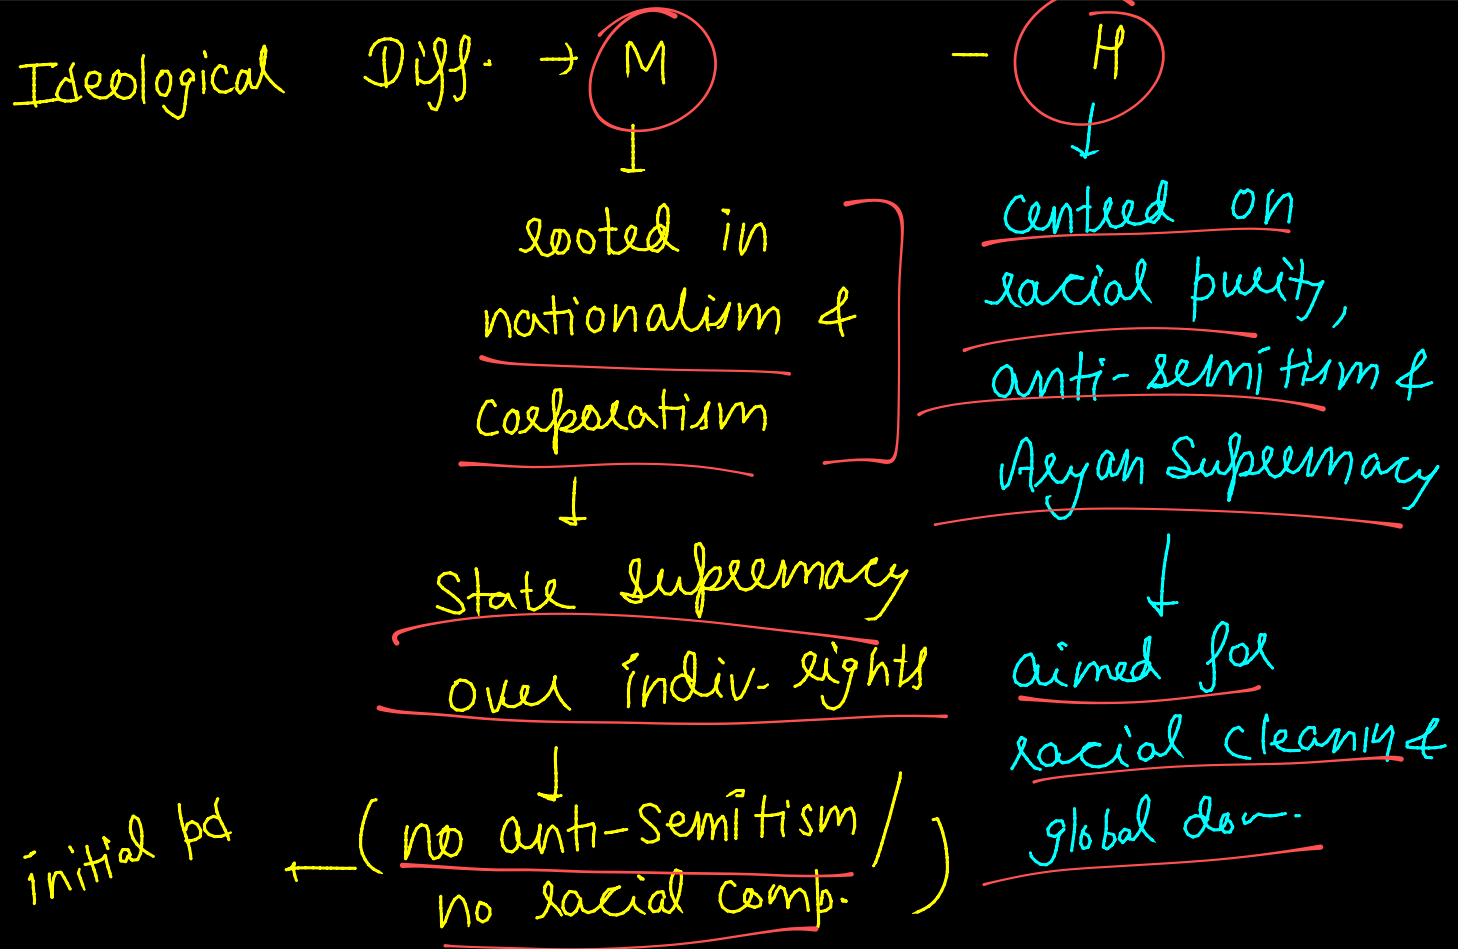 Ideological Diff. → M - H
rooted in
nationalism &
corporatism
State supremacy
over indiv. rights
(no anti-semitism /
no racial comp.)
initial pd
centred on
racial purity,
anti-semitism &
Aryan Supremacy
aimed for
racial cleaning &
global dom.